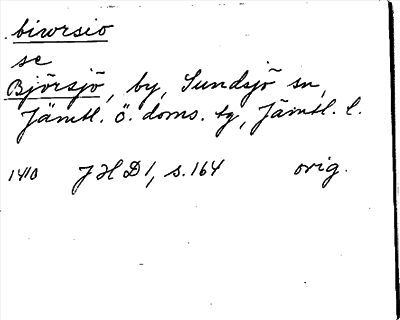 biwrsio
se
Björsjö, by, Sundsjö sn,
Jämtl. ö. doms. tg, Jämtl. l.
1410 JHD 1, s. 164 orig.